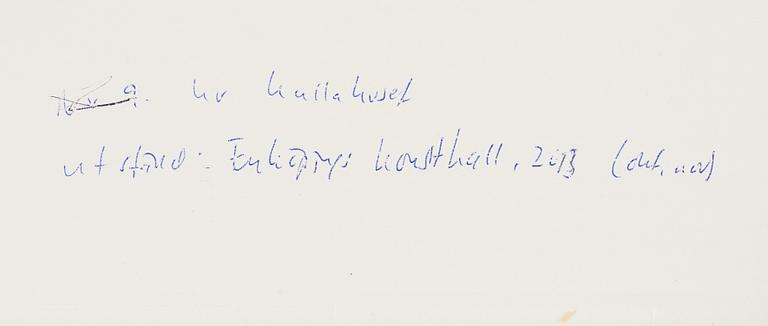 Nr 9. ur Kullahuset
utställd: Enköpings Konsthall, 2013 (okt, nov)